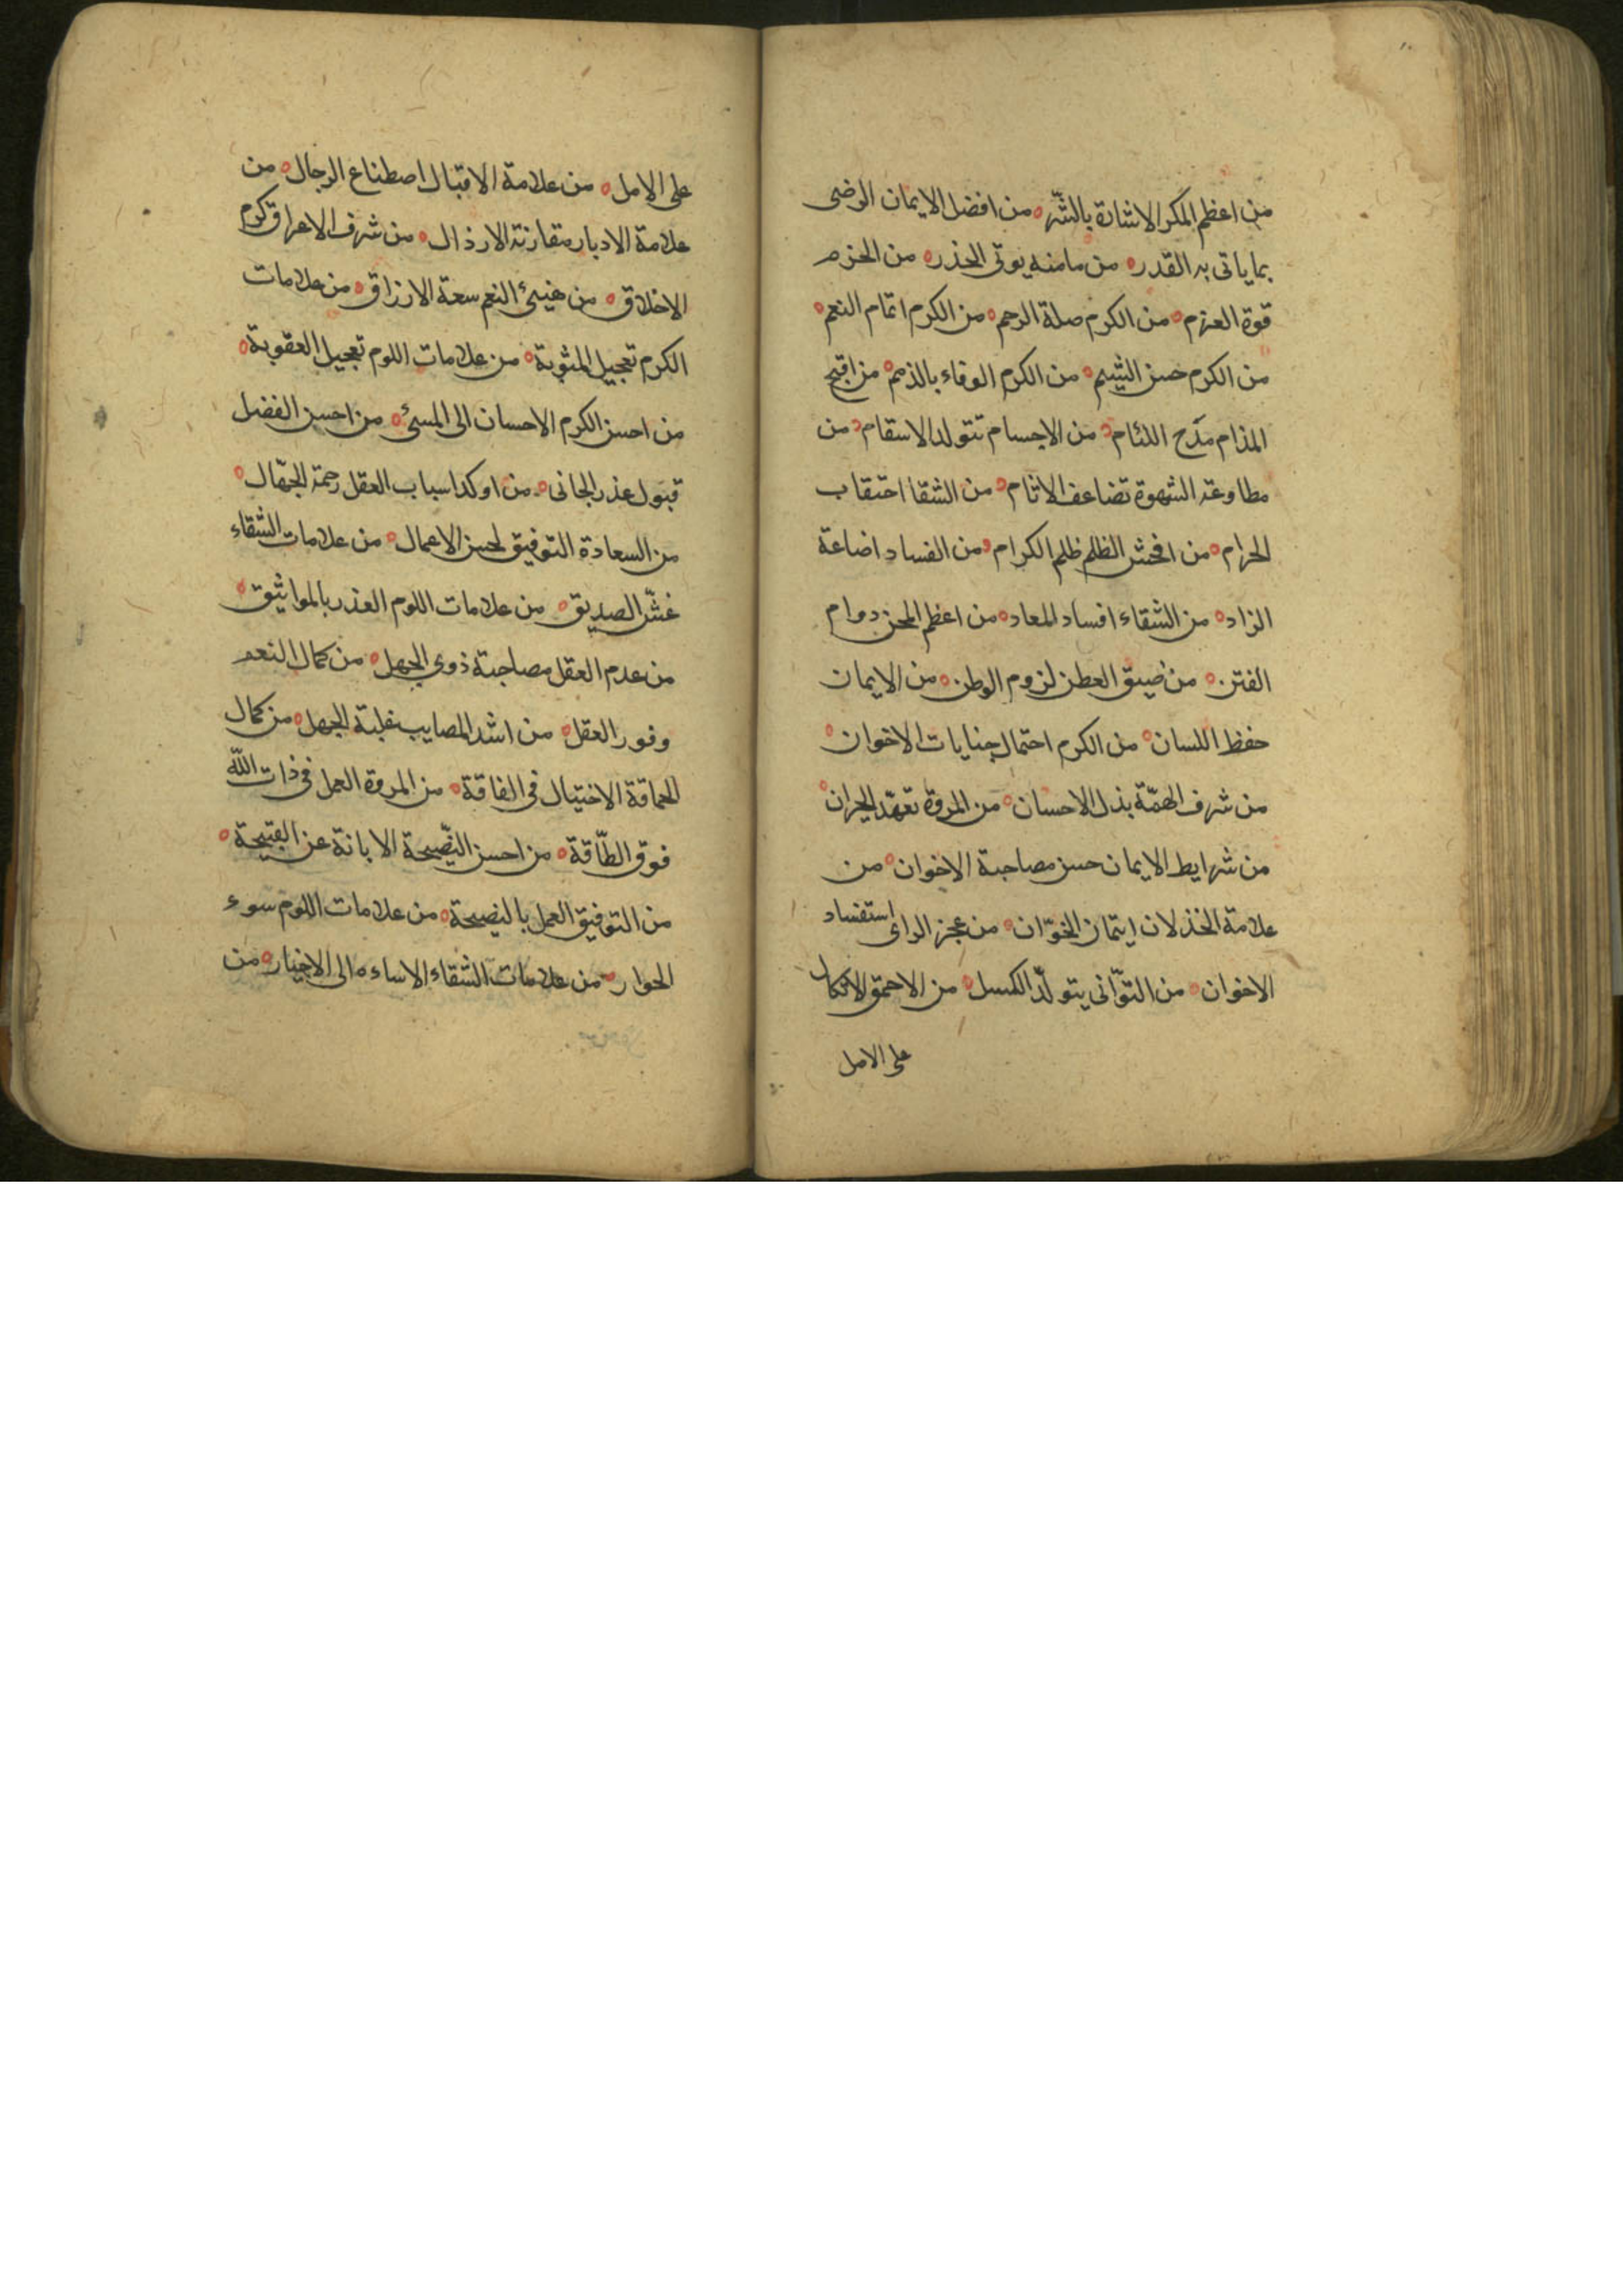 من اعظم المكر الاشارة بالشّر ه من افضل الايمان الرضى
بما ياتى به القدر ه من مامنه يوتى الحذر ه من الحزم
قوة العزم ه من الكرم صلة الرحم ه من الكرم اتمام النعم ه
من الكرم حسن الشيم ه من الكرم الوفاء بالذمم ه من اقبح
المذام مدح اللئام ه من الاجسام تتولد الاسقام ه من
مطاوعة الشهوة تضاعف الاثام ه من الشقا احتقاب
الحرام ه من افحش الظلم ظلم الكرام ه من الفساد اضاعة
الزاد ه من الشقاء افساد المعاد ه من اعظم المحن دوام
الفتن ه من ضيق العطن لزوم الوطن ه من الايمان
حفظ اللسان ه من الكرم احتمال جنايات الاخوان ه
من شرف الهمّة بذل الاحسان ه من المروة تعهّد الجيران ه
من شرايط الايمان حسن مصاحبة الاخوان ه من
علامة الخذلان ايتمان الخوّان ه من عجز الراى استفساد
الاخوان ه من التوّانى يتولّد الكسل ه من الاحمق الاتكال
على الامل
على الامل ه من علامة الاقبال اصطناع الرجال ه من
علامة الادبار مقارنة الارذال ه من شرف الاعراق كرم
الاخلاق ه من هنيئ النعم سعة الارزاق ه من علامات
الكرم تعجيل المثوبة ه من علامات اللوم تعجيل العقوبة ه
من احسن الكرم الاحسان الى المسئ ه من احسن الفضل
قبول عذر الجانى ه من اوكد اسباب العقل رحمة الجهّال ه
من السعادة التوفيق لحسن الاعمال ه من علامات الشقاء
غشّ الصديق ه من علامات اللوم الغدر بالمواثيق ه
من عدم العقل مصاحبة ذوى الجهل ه من كمال النعم
وفور العقل ه من اشد المصايب غلبة الجهل ه من كمال
الحماقة الاختيال فى الفاقة ه من المروة العمل فى ذات اللّه
فوق الطّاقة ه من احسن النّصيحة الابانة عن القبيحة ه
من التوفيق العمل بالنصيحة ه من علامات اللوم سوء
الجوار ه من علامات الشقاء الاساءه الى الاخيار ه من